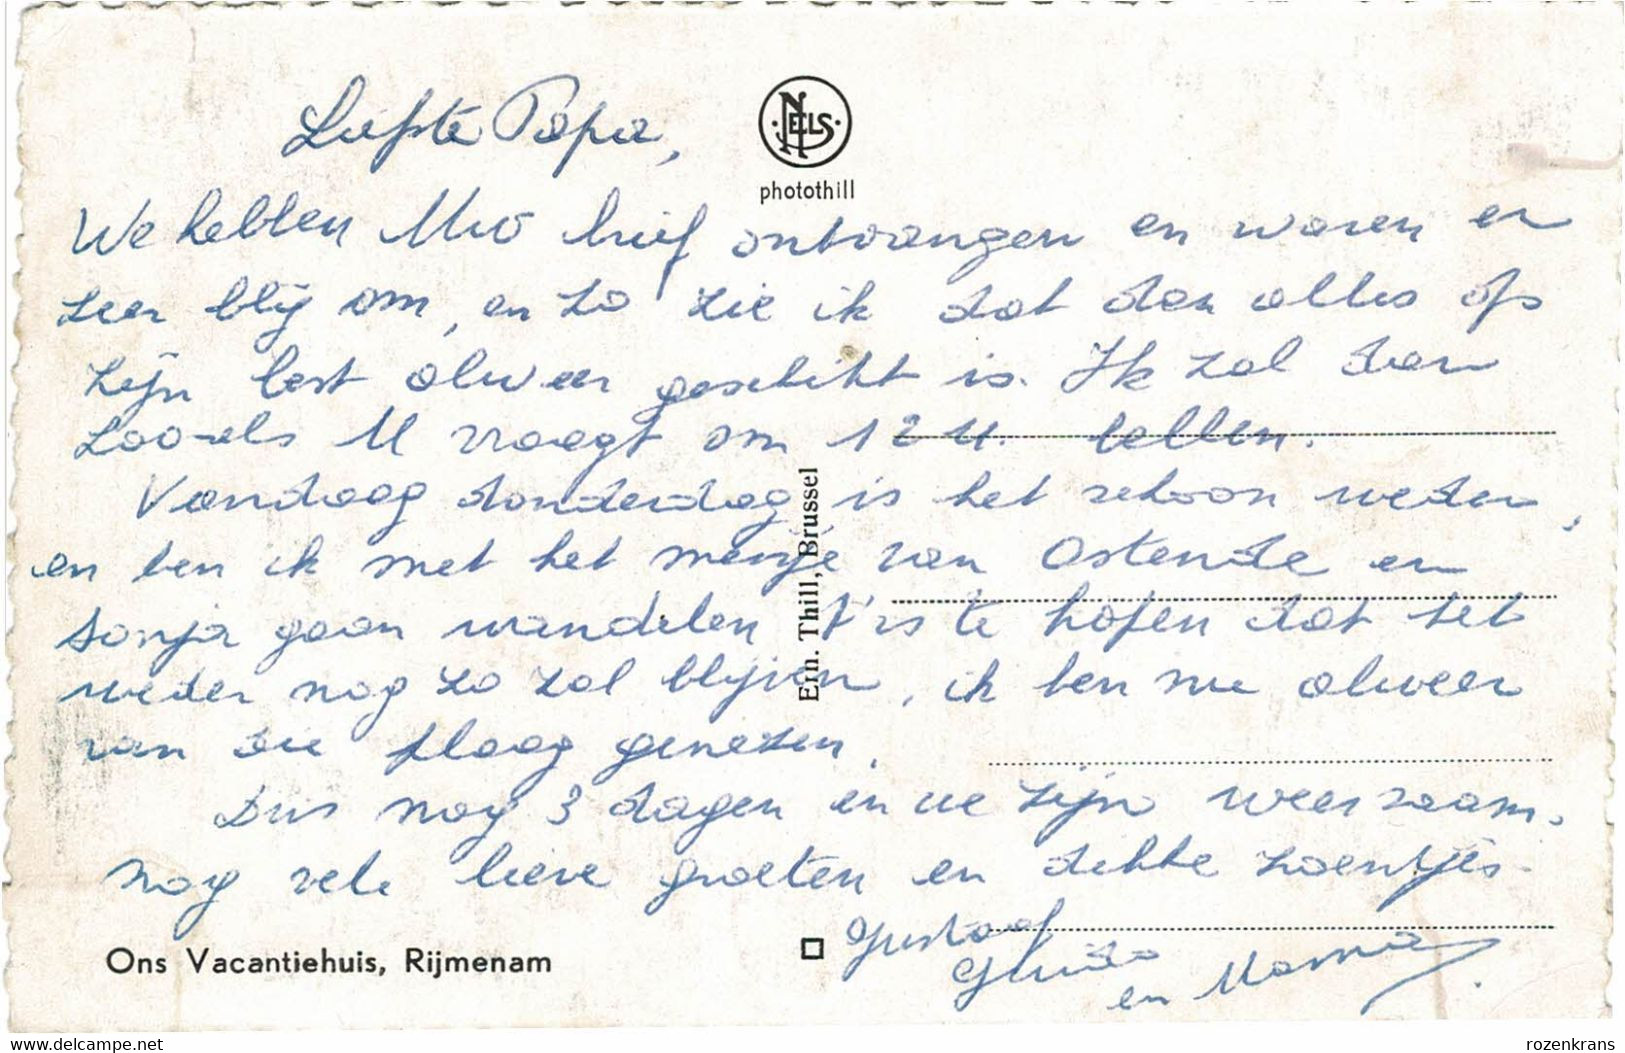 Liefste Papa,
NELS
photothill
We hebben Uw brief ontvangen en waren er
zeer blij om, en zo zie ik dat dan alles op
zijn best alweer geschikt is. Ik zal dan
zoo-als U vraagt om 12 u. bellen.
Vandaag donderdag is het schoon weder,
en ben ik met het meisje van Ostende en
Sonja gaan wandelen, t' is te hopen dat het
weder nog zo zal blijven, ik ben nu alweer
van die plaag genezen.
Dus nog 3 dagen en we zijn weer zaam.
nog vele lieve groeten en dikke zoentjes.
Gustaaf
Guido
en Mama.
Ern. Thill, Brussel
Ons Vacantiehuis, Rijmenam
www.delcampe.net
rozenkrans